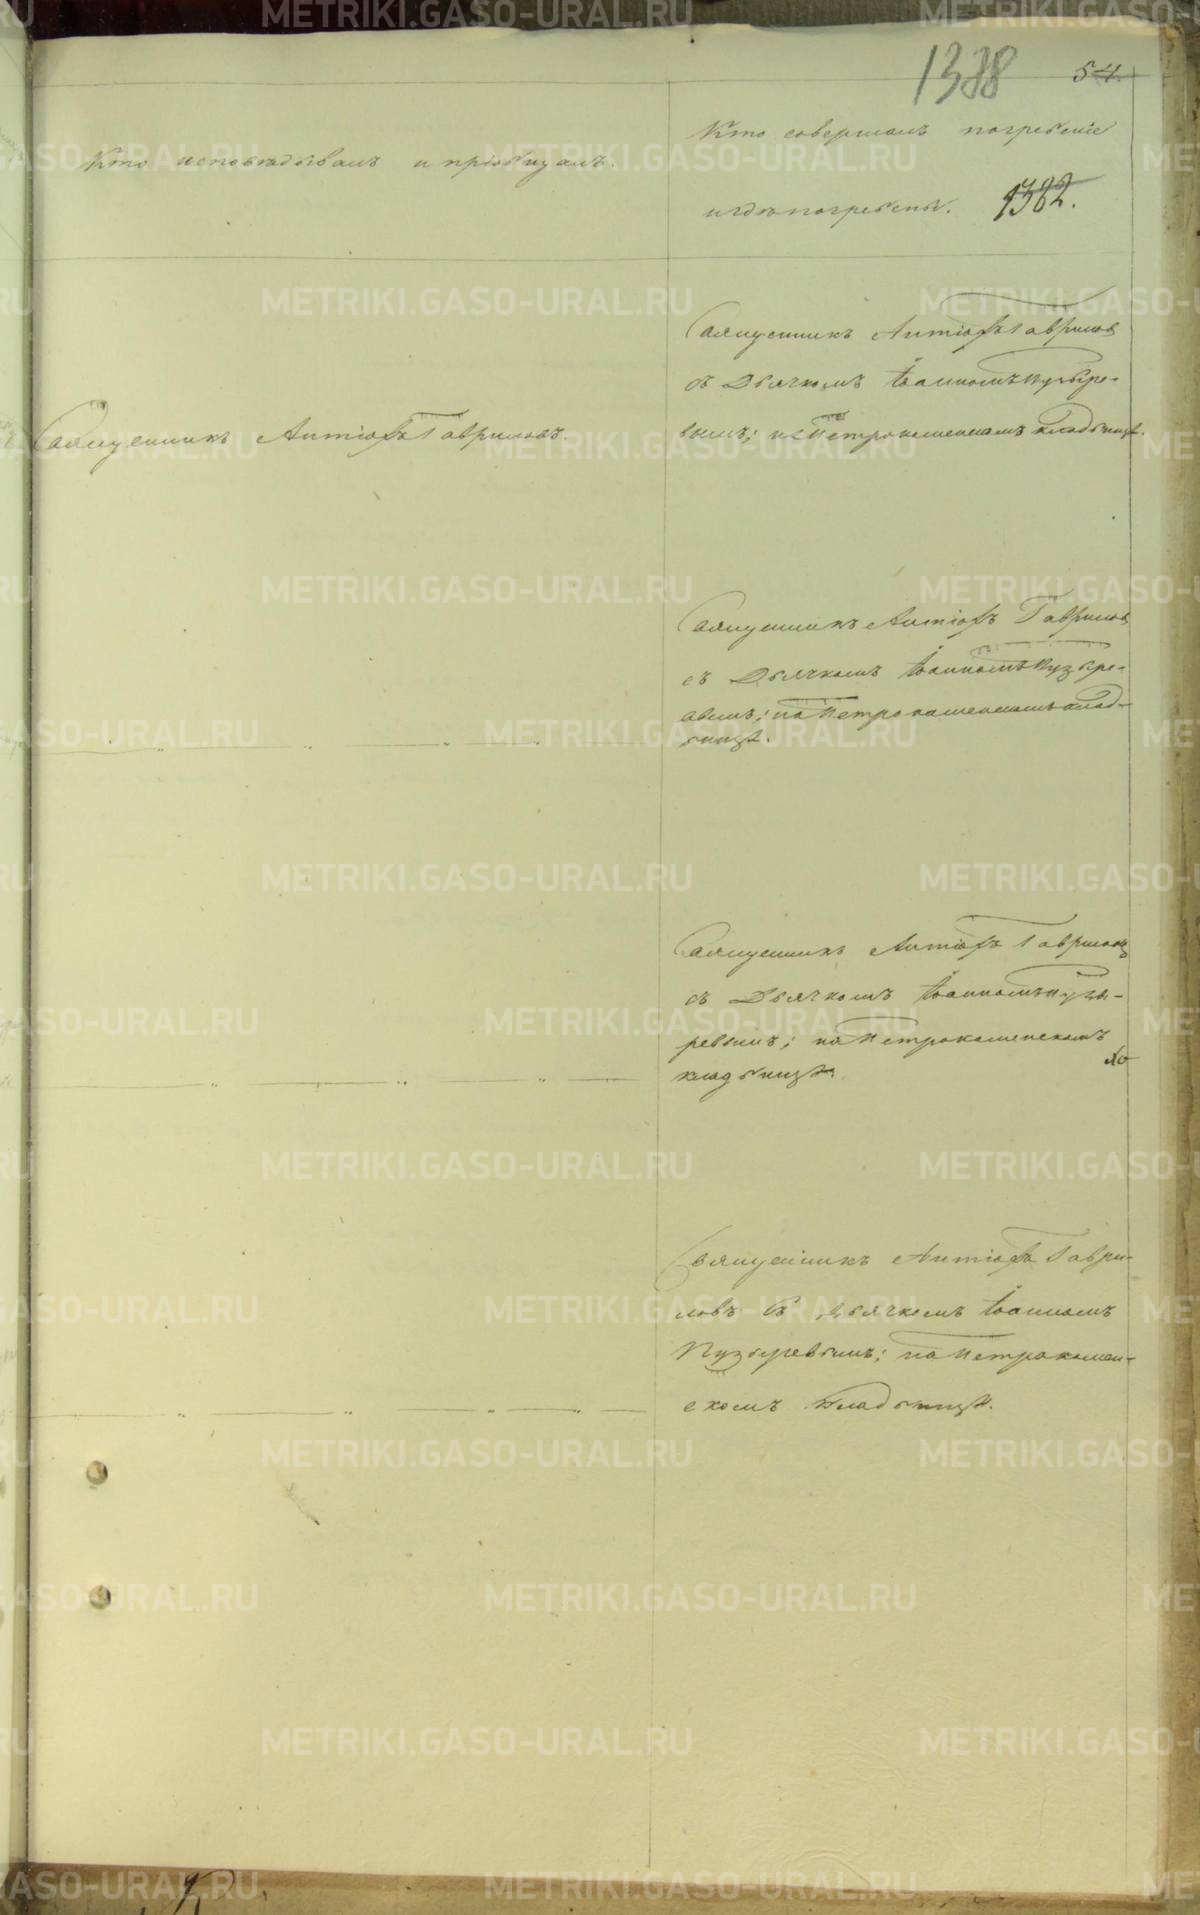 1388
54.
Кто исповѣдывалъ и пріобщалъ.
Кто совершалъ погребеніе
и гдѣ погребены.
1382.
Священникъ Антіохъ Гавриловъ.
Священникъ Антіохъ Гавриловъ
съ Дьячкомъ Іоанномъ Пузыре-
вымъ; на Петрокаменскомъ кладбищѣ.
Священникъ Антіохъ Гавриловъ
съ Дьячкомъ Іоанномъ Пузыре-
вымъ; на Петрокаменскомъ клад-
бищѣ.
— „ — „ — „ —
Священникъ Антіохъ Гавриловъ
съ Дьячкомъ Іоанномъ Пузы-
ревымъ; на Петрокаменскомъ
кладбищѣ.
— „ — „ — „ —
Священникъ Антіохъ Гаври-
ловъ съ Дьячкомъ Іоанномъ
Пузыревымъ; на Петрокамен-
скомъ кладбищѣ.
— „ — „ — „ — „ —
METRIKI.GASO-URAL.RU